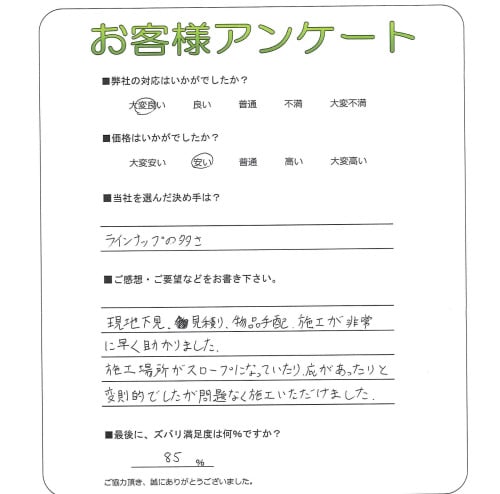 お客様アンケート
■弊社の対応はいかがでしたか?
大変良い 良い 普通 不満 大変不満
■価格はいかがでしたか?
大変安い 安い 普通 高い 大変高い
■当社を選んだ決め手は?
ラインナップの多さ
■ご感想・ご要望などをお書き下さい。
現地下見、見積り、物品手配、施工が非常
に早く助かりました。
施工場所がスロープになっていたり、底があったりと
変則的でしたが問題なく施工いただけました。
■最後に、ズバリ満足度は何%ですか?
85 %
ご協力頂き、誠にありがとうございました。